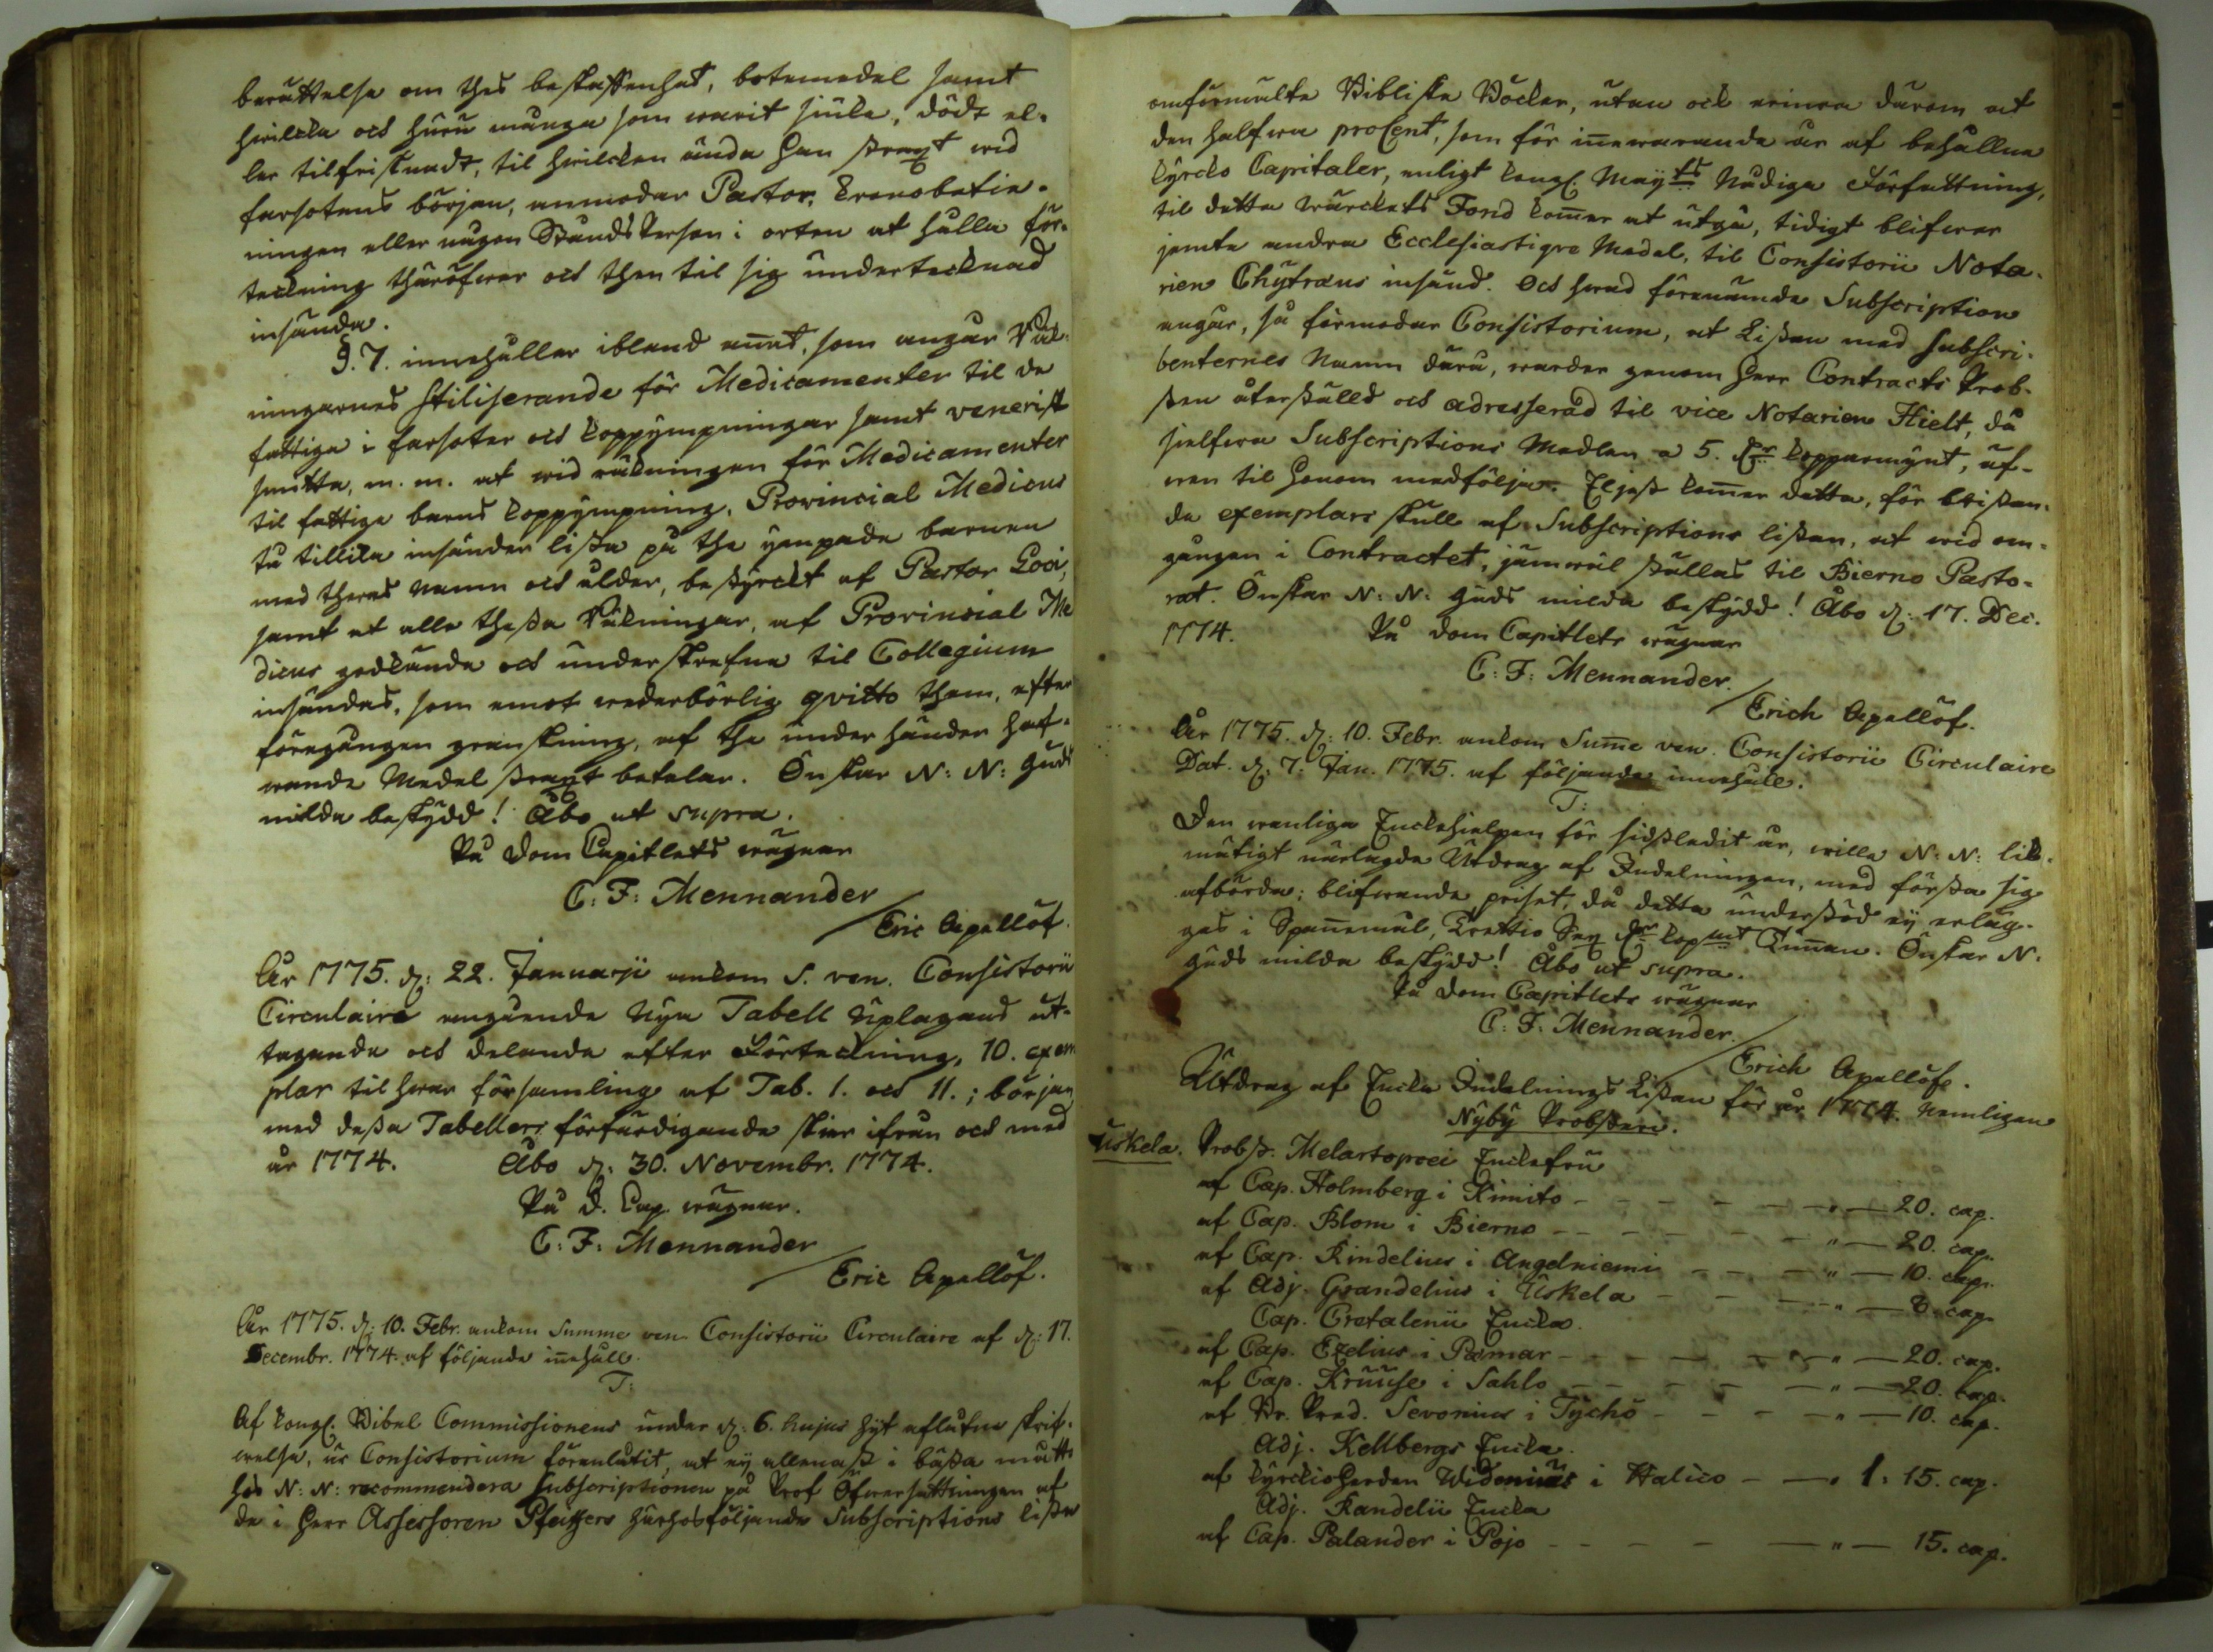 berättelse om thes beskaffenhet, botemedel samt
hvilcka och huru många som warit siuka, dödt el-
ler tilfrisknadt, til hvilcken ända han straxt wid
farsotens början, anmodar Pastor, Cronobetie-
ningen eller någon Ståndsperson i orten at hålla för-
teckning häröfwer och then til sig undertecknad
insända.
§. 7. innehåller ibland annat, som angår Räk-
ningarnes stiliserande för Medicamenter til de
fattiga i farsoter och koppympningar samt venerisk
smitta, m. m. at wid räkningen för Medicamenter
til fattiga barns koppympning, Provincial Medicus
tillika insänder lista på the ympade barnen
med theras namn och ålder, bestyrckt af Pastor Loci,
samt at alla thessa Räkningar, af Provincial Me
dicus godkände och underskrefne til Collegium
insändas, som emot wederbörlig qvitto them, efter
föregången granskning, af the under händer haf-
wande Medel straxt betalar. Önskar N: N: Guds
milda beskydd! Åbo ut supra.
På Dom Capitlets wägnar
C: F: Mennander
Eric Apellöf.
År 1775. d: 22. Januarii ankom S. ven. Consistorii
Circulaire angående Nya Tabell Uplagans ut-
tagande och delande efter Förteckning, 10. exem
plar til hwar församling af Tab. 1. och 11.; början
med dessa Tabellers förfärdigande sker ifrån och med
år 1774. Åbo d: 30. Novembr. 1774.
På D. Cap. wägnar.
C: F: Mennander
Eric Apellöf.
År 1775. d: 10. Febr. ankom Summe ven. Consistorii Circulaire af d: 17.
Decembr. 1774. af följande innehåll.
T:
Af Kongl. Bibel Commissionens under d: 6. hujus hit aflåtne skrif-
welse, är Consistorium föranlåtit, at ej allenast i bästa matto
hos N: N: recommendera subscriptionen på Prof Öfwersättningen af
de i Herr Assessoren Pfeiffers härhosföljande Subscriptions lista
omförmälte Bibliska Böcker, utan ock erinra därom at
den halfwa proCent, som för innewarande år af behållne
Kyrcko Capitaler, enligt Kongl. Maj:ts Nådiga Författning,
til detta wärckets Fond kommer at utgå, tidigt blifwer
jemte andra Ecclesiastique Medel, til Consistorii Nota-
rien Chytræus insänd. Och hwad förenämnde Subscription
angår, så förmodar Consistorium, at Listan med subscri-
benternes Namn därå, warder genom Herr Contracts Prob-
sten återstäld och adresserad til vice Notarien Hielt, då
sielfwa Subscriptions Medlen a 5. Dlr Kopparmynt, äf-
wen til honom medfölja. Eljest kommer detta, för bristan-
de exemplars skull af Subscriptions listan, at wid om-
gången i Contractet, jämwäl ställas til Bierno Pasto-
rat. Önskar N: N: Guds milda beskydd! Åbo d: 17. Dec.
1774. På Dom Capitlets wägnar
C: F: Mennander.
Erich Apellöf.
År 1775. d: 10. Febr. ankom Summe ven. Consistorii Circulaire
Dat. d. 7. Jan. 1775. af följande innehåll.
T:
Den wanliga Enckehielpen för sidstledit år, wille N: N: lik-
mätigt närlagde Utdrag af Indelningen, med första sig
afbörda; blifwande priset, då detta understöd ej erläg-
ges i Spannemål, Trettio Sex Dlr kopmt Tunnan. Önskar N.
Guds milda beskydd! Åbo ut supra.
På Dom Capitlets wägnar
C: F: Mennander.
Erich Apellöf.
Utdrag af Encke Indelnings Listan för år 1774. Nemligen
Nyby Probsteri.
Uskela. Probst. Melartopoei Enckefru
af Cap. Holmberg i Kimito - - - - " - 20. cap.
af Cap. Blom i Bierno - - - - " - 20. cap.
af Cap. Kindelius i Angelniemi - - - " - 10. cap.
af Adj. Grandelius i Uskela - - - " - 8. cap.
Cap. Cretalenii Encka.
af Cap. Ezelius i Pæmar - - - - " - 20. cap.
af Cap. Kruuse i Sahlo - - - - " - 20. cap.
af Br. Præd. Sevonius i Tycho - - - " - 10. cap.
Adj. Kellbergs Encka.
af Kyrckioherden Widenius i Halico - - 1: 15. cap.
Adj. Randelii Encka
af Cap. Palander i Pojo - - - - " - 15. cap.